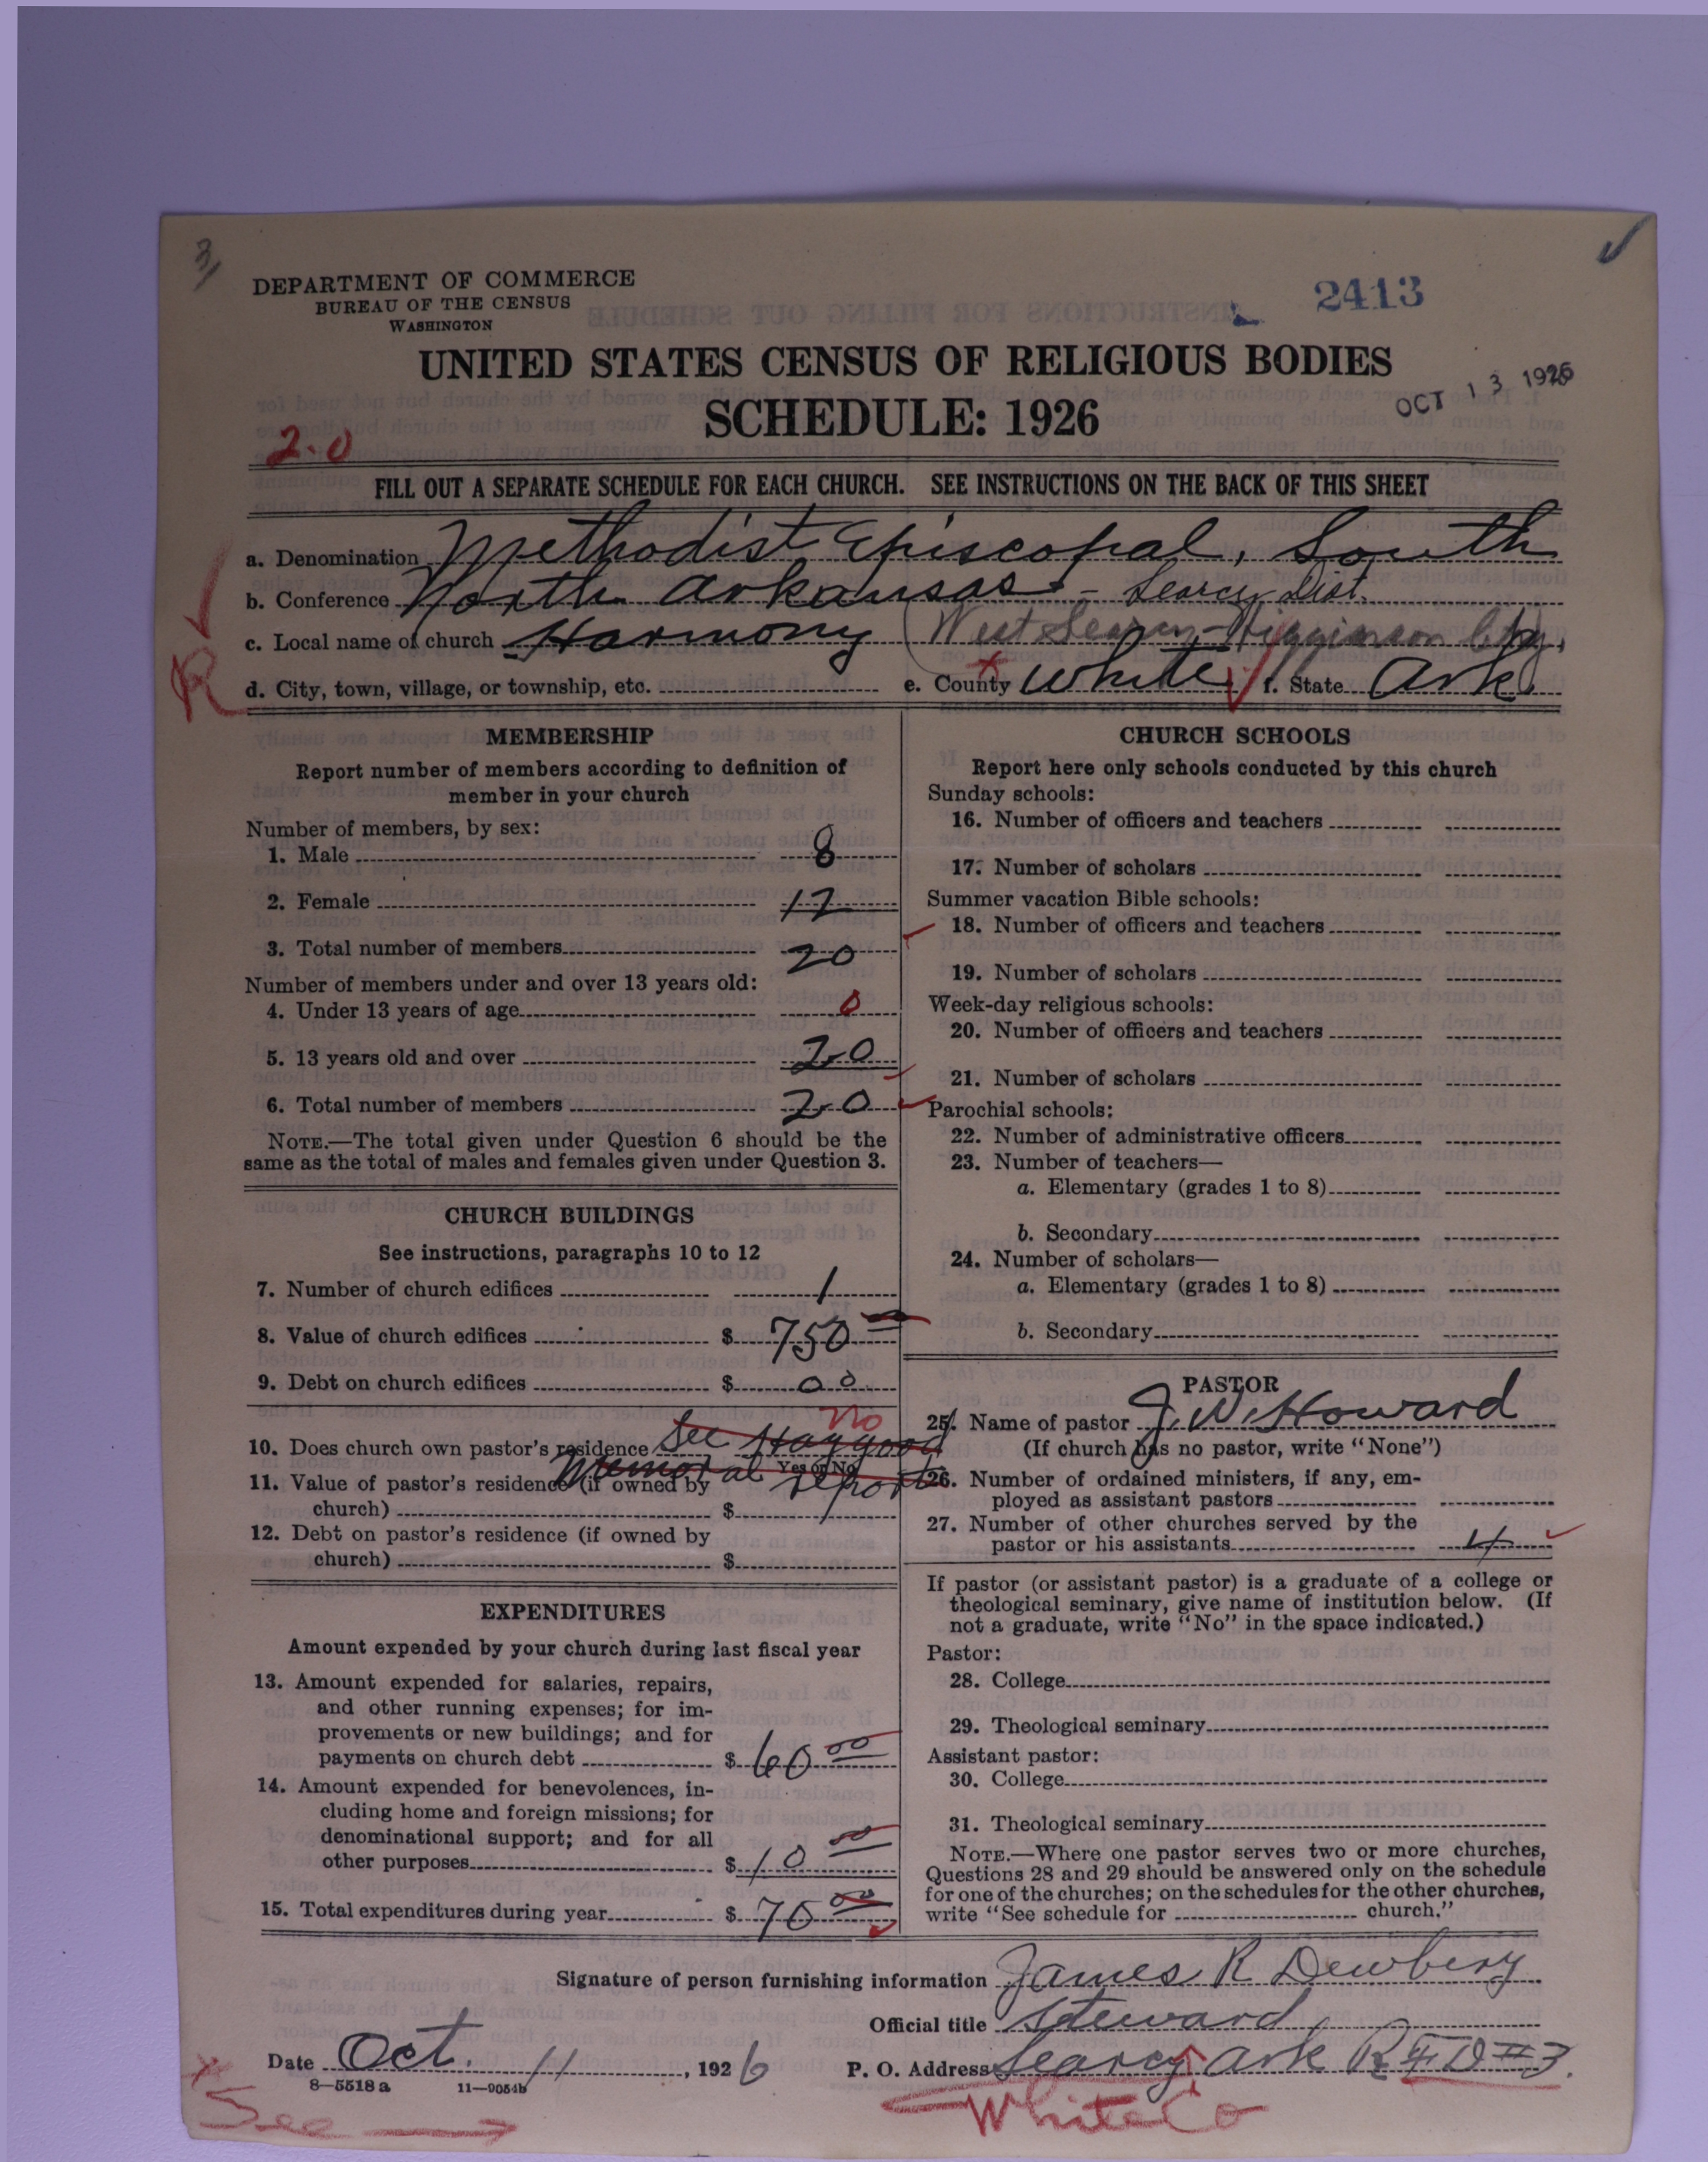 3
DEPARTMENT OF COMMERCE
BUREAU OF THE CENSUS
WASHINGTON
2413
UNITED STATES CENSUS OF RELIGIOUS BODIES
SCHEDULE: 1926
OCT 13 1926
2-0
FILL OUT A SEPARATE SCHEDULE FOR EACH CHURCH. SEE INSTRUCTIONS ON THE BACK OF THIS SHEET
a. Denomination Methodist Episcopal, South
b. Conference North Arkansas - Searcy Dist.
c. Local name of church Harmony (West Searcy - Higginson
R
d. City, town, village, or township, etc. e. County White f. State Ark
MEMBERSHIP
Report number of members according to definition of
member in your church
Number of members, by sex:
1. Male 8
2. Female 12
3. Total number of members 20
Number of members under and over 13 years old:
4. Under 13 years of age 0
5. 13 years old and over 20
6. Total number of members 20
NOTE.—The total given under Question 6 should be the
same as the total of males and females given under Question 3.
CHURCH BUILDINGS
See instructions, paragraphs 10 to 12
7. Number of church edifices 1
8. Value of church edifices $ 750
9. Debt on church edifices $ 00
No
10. Does church own pastor's residence See Haygood
Yes or No
Memorial report
11. Value of pastor's residence (if owned by
church) $
12. Debt on pastor's residence (if owned by
church) $
EXPENDITURES
Amount expended by your church during last fiscal year
13. Amount expended for salaries, repairs,
and other running expenses; for im-
provements or new buildings; and for
payments on church debt $ 60 00
14. Amount expended for benevolences, in-
cluding home and foreign missions; for
denominational support; and for all
other purposes $ 10 00
15. Total expenditures during year $ 70 00
CHURCH SCHOOLS
Report here only schools conducted by this church
Sunday schools:
16. Number of officers and teachers
17. Number of scholars
Summer vacation Bible schools:
18. Number of officers and teachers
19. Number of scholars
Week-day religious schools:
20. Number of officers and teachers
21. Number of scholars
Parochial schools:
22. Number of administrative officers
23. Number of teachers—
a. Elementary (grades 1 to 8)
b. Secondary
24. Number of scholars—
a. Elementary (grades 1 to 8)
b. Secondary
PASTOR
25. Name of pastor J. W. Howard
(If church has no pastor, write "None")
26. Number of ordained ministers, if any, em-
ployed as assistant pastors
27. Number of other churches served by the
pastor or his assistants 4
If pastor (or assistant pastor) is a graduate of a college or
theological seminary, give name of institution below. (If
not a graduate, write "No" in the space indicated.)
Pastor:
28. College
29. Theological seminary
Assistant pastor:
30. College
31. Theological seminary
NOTE.—Where one pastor serves two or more churches,
Questions 28 and 29 should be answered only on the schedule
for one of the churches; on the schedules for the other churches,
write "See schedule for church."
Signature of person furnishing information James R Dewbery
Official title Steward
Date Oct. 11, 1926 P. O. Address Searcy Ark R F D #3.
8—5518 a 11—9054b
See → White Co